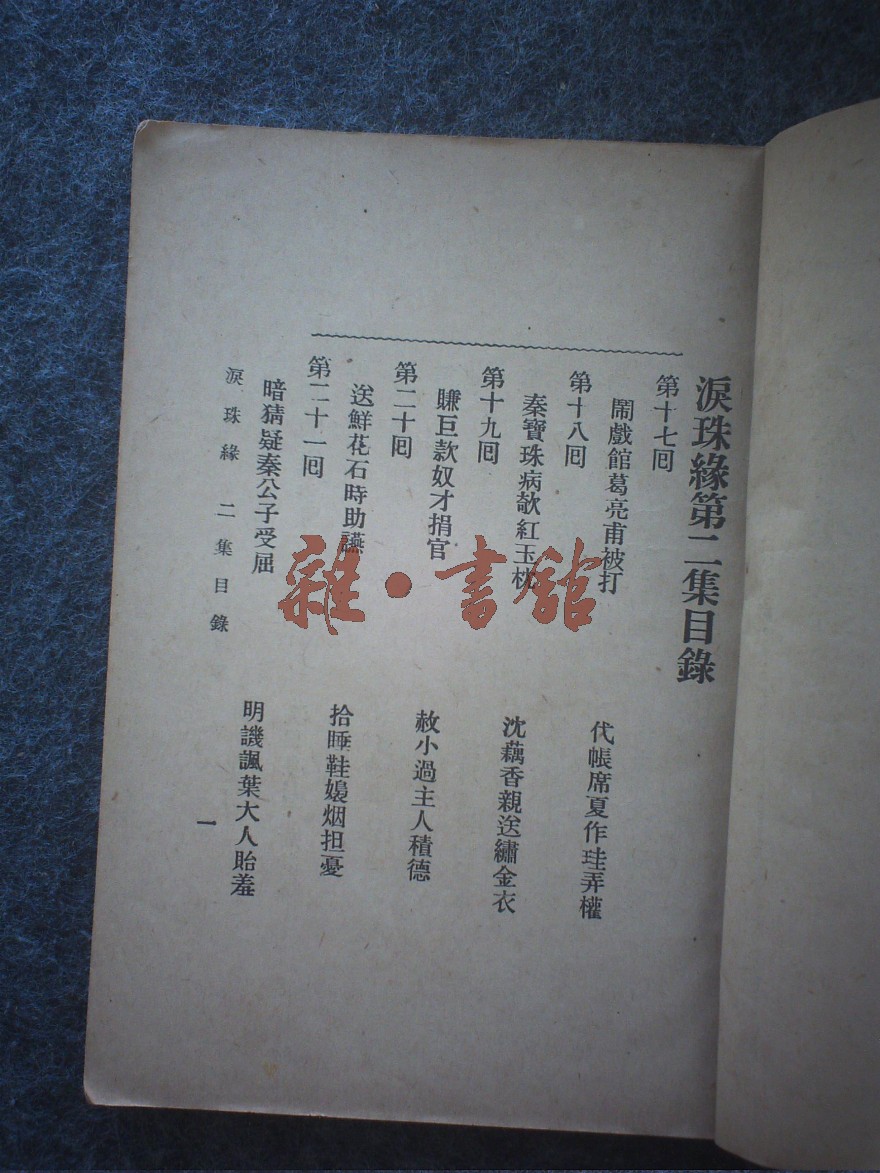 淚珠緣第二集目錄
第十七囘
鬧戲館葛亮甫被打 代帳席夏作珪弄權
第十八囘
秦寶珠病欹紅玉枕 沈藕香親送繡金衣
第十九囘
賺巨款奴才捐官 赦小過主人積德
第二十囘
送鮮花石時助讌 拾睡鞋嬝烟担憂
第二十一囘
暗猜疑秦公子受屈 明譏諷葉大人貽羞
淚珠緣 二集目錄 一
雜·書館